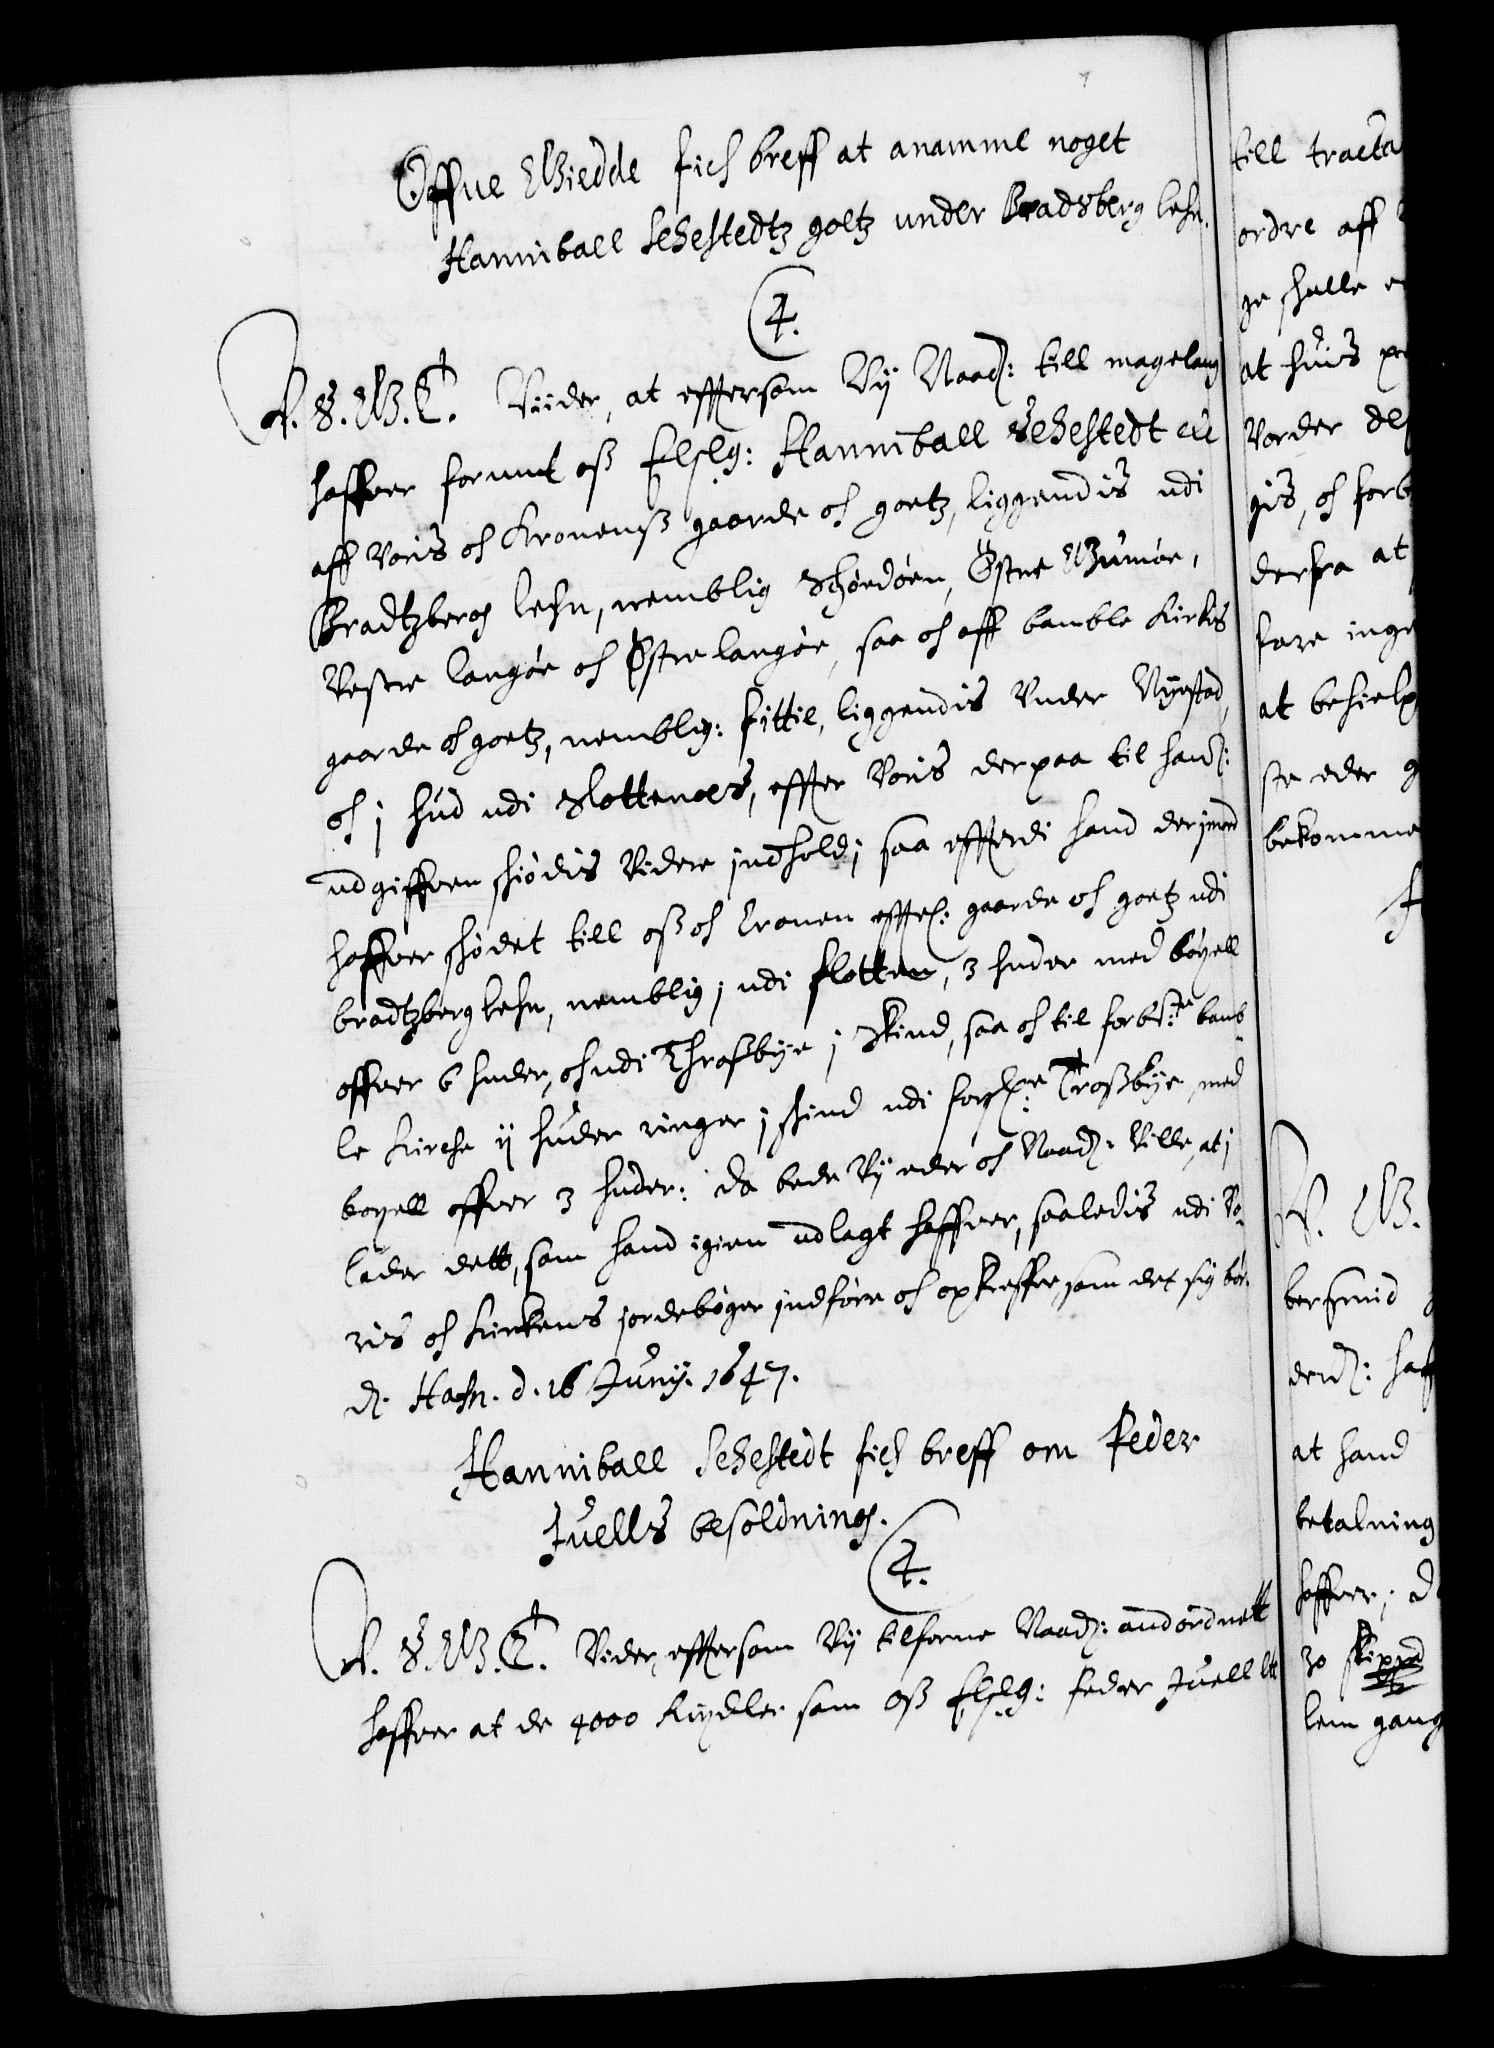 Offue Giedde fich breff at anamme noget
Hanniball Sehestedtz goetz under Bradsberg lehn.
4.
C. 4. V.G.T. Viider, at eftersom Vij Naad: till magelaug
haffver forundt oß Elslg: Hanniball Sehestedt etc
aff Voris och Kronens gaarde och goetz, liggendis udi
Bradtzberg lehn, nemblig Schiødøen, Østre Gumøe,
Vestre langøe och Østre langøe, saa och aff bamble Kirkis
gaarde och goetz, nemblig: fittie, liggendis Vnder Nyestad,
och j hud udi Slottenoes, effter Voris derpaa til hand:
udgiffven schiødis Videre jndhold; saa efftterdi hand derjmod
haffver schiødet till oß och Cronen effterß: gaarde och goetz udi
bradtzberg lehn, nemblig; udi flotten, 3 huder med bøyell
offver 6 huder, och udi Throßbye j skind, saa och til forbte bamb
le Kirche ij huder ringer j skind udi forßne Troßbye, med
boyell offver 3 huder: da bede Vij eder och Naad: Ville, at j
lader dett, som hand igien udlagt haffver, saaledis udi Vo
ris och Kirkens jordebøger jndføre och opkreffve, som det sig bør.
d. Hafn. d. 16 Junij. 1647.
Hanniball Sehestedt fich breff om Peder
Juells besoldning.
4.
C. 4. V.G.T. Vider, eftersom Vij tilforne Naad: anordnett
haffver at de 4000 Rixdler som oß Elslg: Peder Juell ltt
till tracta
ordre aff
ge skulle e
at huis pe
Vorder de
gis, och forb
derfra at
fore inge
at behielp
ste eder g
bekomme
C. V.
bersmid
derß: haff
at hand
betalning
haffver; d
30 skippd
lem gang